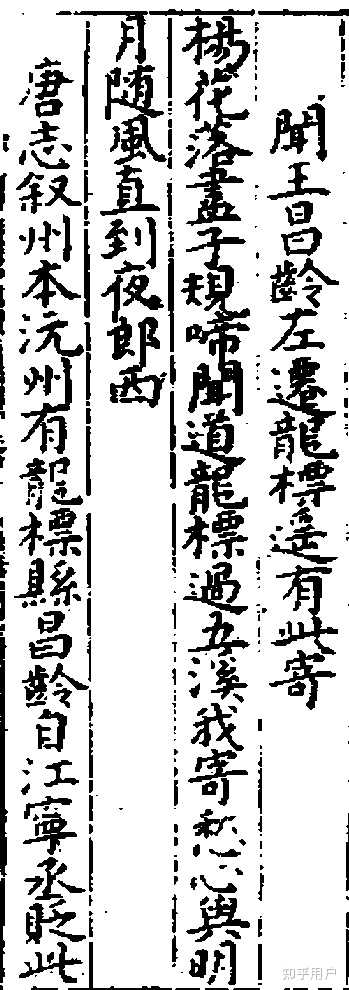 聞王昌齡左遷龍標遥有此寄
楊花落盡子規啼聞道龍標過五溪我寄愁心與明
月随風直到夜郎西
唐志叙州本沅州有龍標縣昌齡自江寧丞貶此
知乎用户